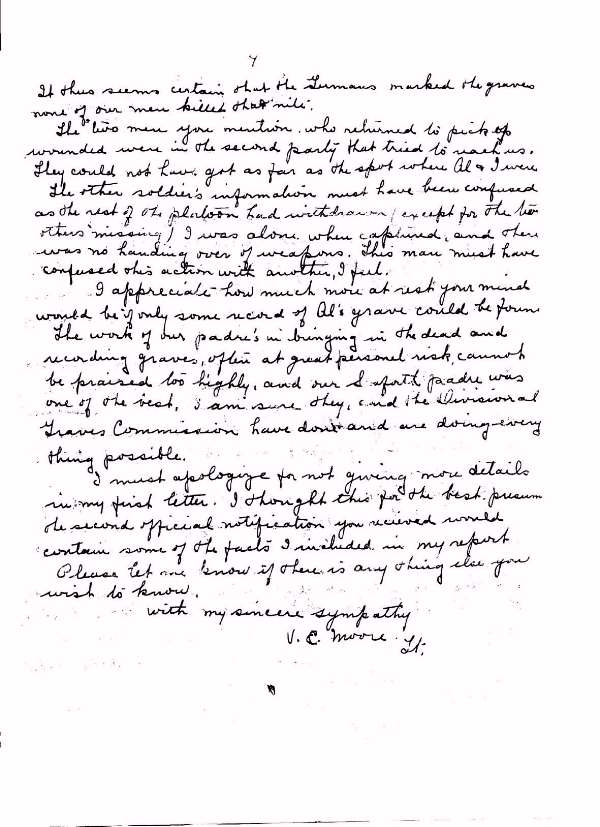 7
It thus seems certain that the Germans marked the graves
none of our men killed that nite.
The two men you mention who returned to pick up
wounded were in the second party that tried to reach us.
They could not have got as far as the spot where Al & I were
The other soldier's information must have been confused
as the rest of the platoon had withdrawn (except for the two
others missing) I was alone when captured, and there
was no handing over of weapons. This man must have
confused this action with another, I feel.
I appreciate how much more at rest your mind
would be if only some record of Al's grave could be foun
The work of our padre's in bringing in the dead and
recording graves, often at great personal risk, cannot
be praised too highly, and our Seaforth padre was
one of the best, I am sure they, and the Divisional
Graves Commission have done and are doing every
thing possible.
I must apologize for not giving more details
in my first letter. I thought this for the best. presum
the second official notification you recieved would
contain some of the facts I included in my report
Please let me know if there is any thing else you
wish to know.
with my sincere sympathy
V. E. Moore Lt.